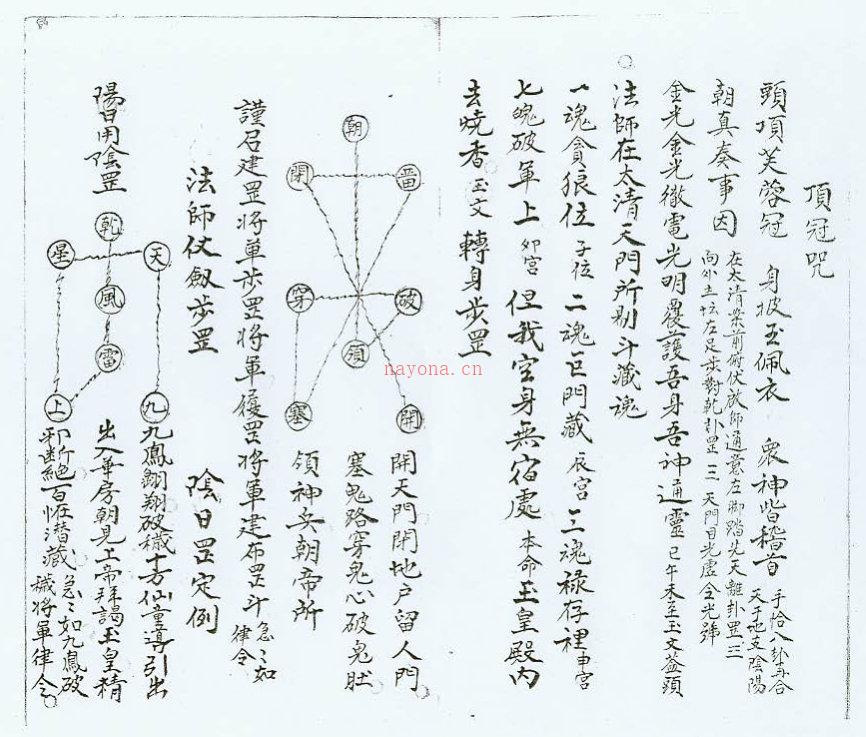 頂冠咒
頭頂芙蓉冠 身披玉佩衣 眾神皆稽首 手恰八卦再合
天干地支陰陽
朝真奏事因 在太清案前俯伏啟師通意左脚踏先天離卦罡三
向外立坛左足步對乾卦罡三 天門目光虛 金光號
金光金光徹電光明覆護吾身吾神通靈 巳午未至玉文蓋頭
法師在太清天門所剔斗藏魂
一魂貪狼位 子位 二魂巨門藏 辰宮 三魂祿存裡 申宮
七魄破軍上 卯宮 但我空身無宿處 本命 玉皇殿內
去燒香 玉文 轉身步罡
朝
閉 畱
穿 破
領
塞 開
開天門閉地戶留人門
塞鬼路穿鬼心破鬼肚
領神兵朝帝所
謹召建罡將軍步罡將軍履罡將軍建布罡斗 急〻如
律令
法師仗劔步罡 陰日罡定例
陽日用陰罡
乾
星 天
風
雷
上 九
九鳳翱翔破穢十方仙童導引出
出入華房朝見上帝拜謁玉皇精
邪斷絕百怪潛藏 急〻如九鳳破
穢將軍律令
nayona.cn